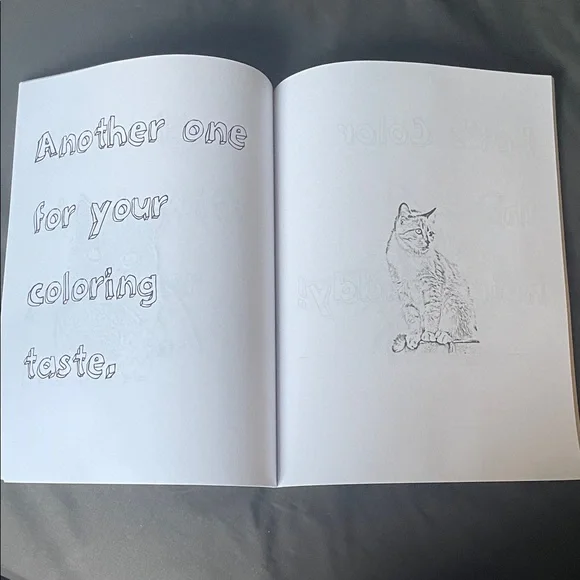 Another one
for your
coloring
taste.